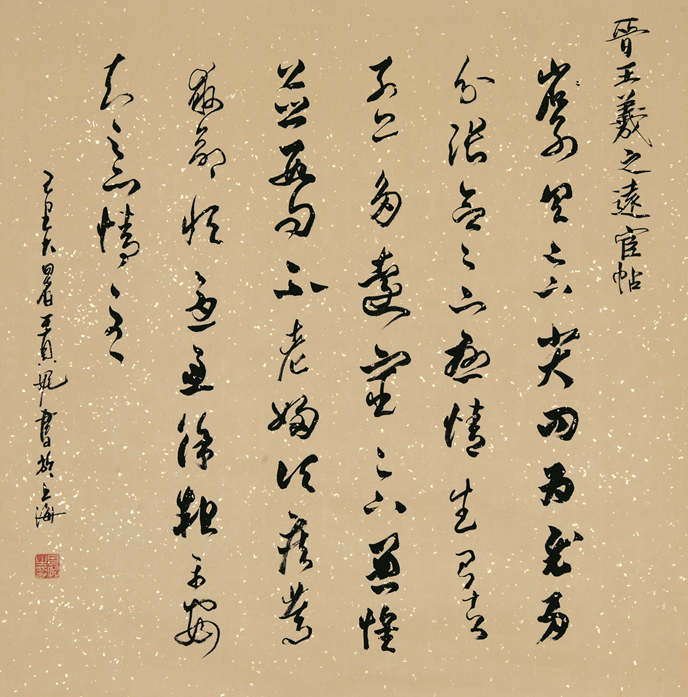 晉王羲之遠宦帖
省別具足下小大問為慰多
分張念足下懸情武昌諸
子亦多遠宦足下兼懷
並數問不老婦頃疾篤
救命恒憂慮餘粗平安
知足下情至
大暑書於上海